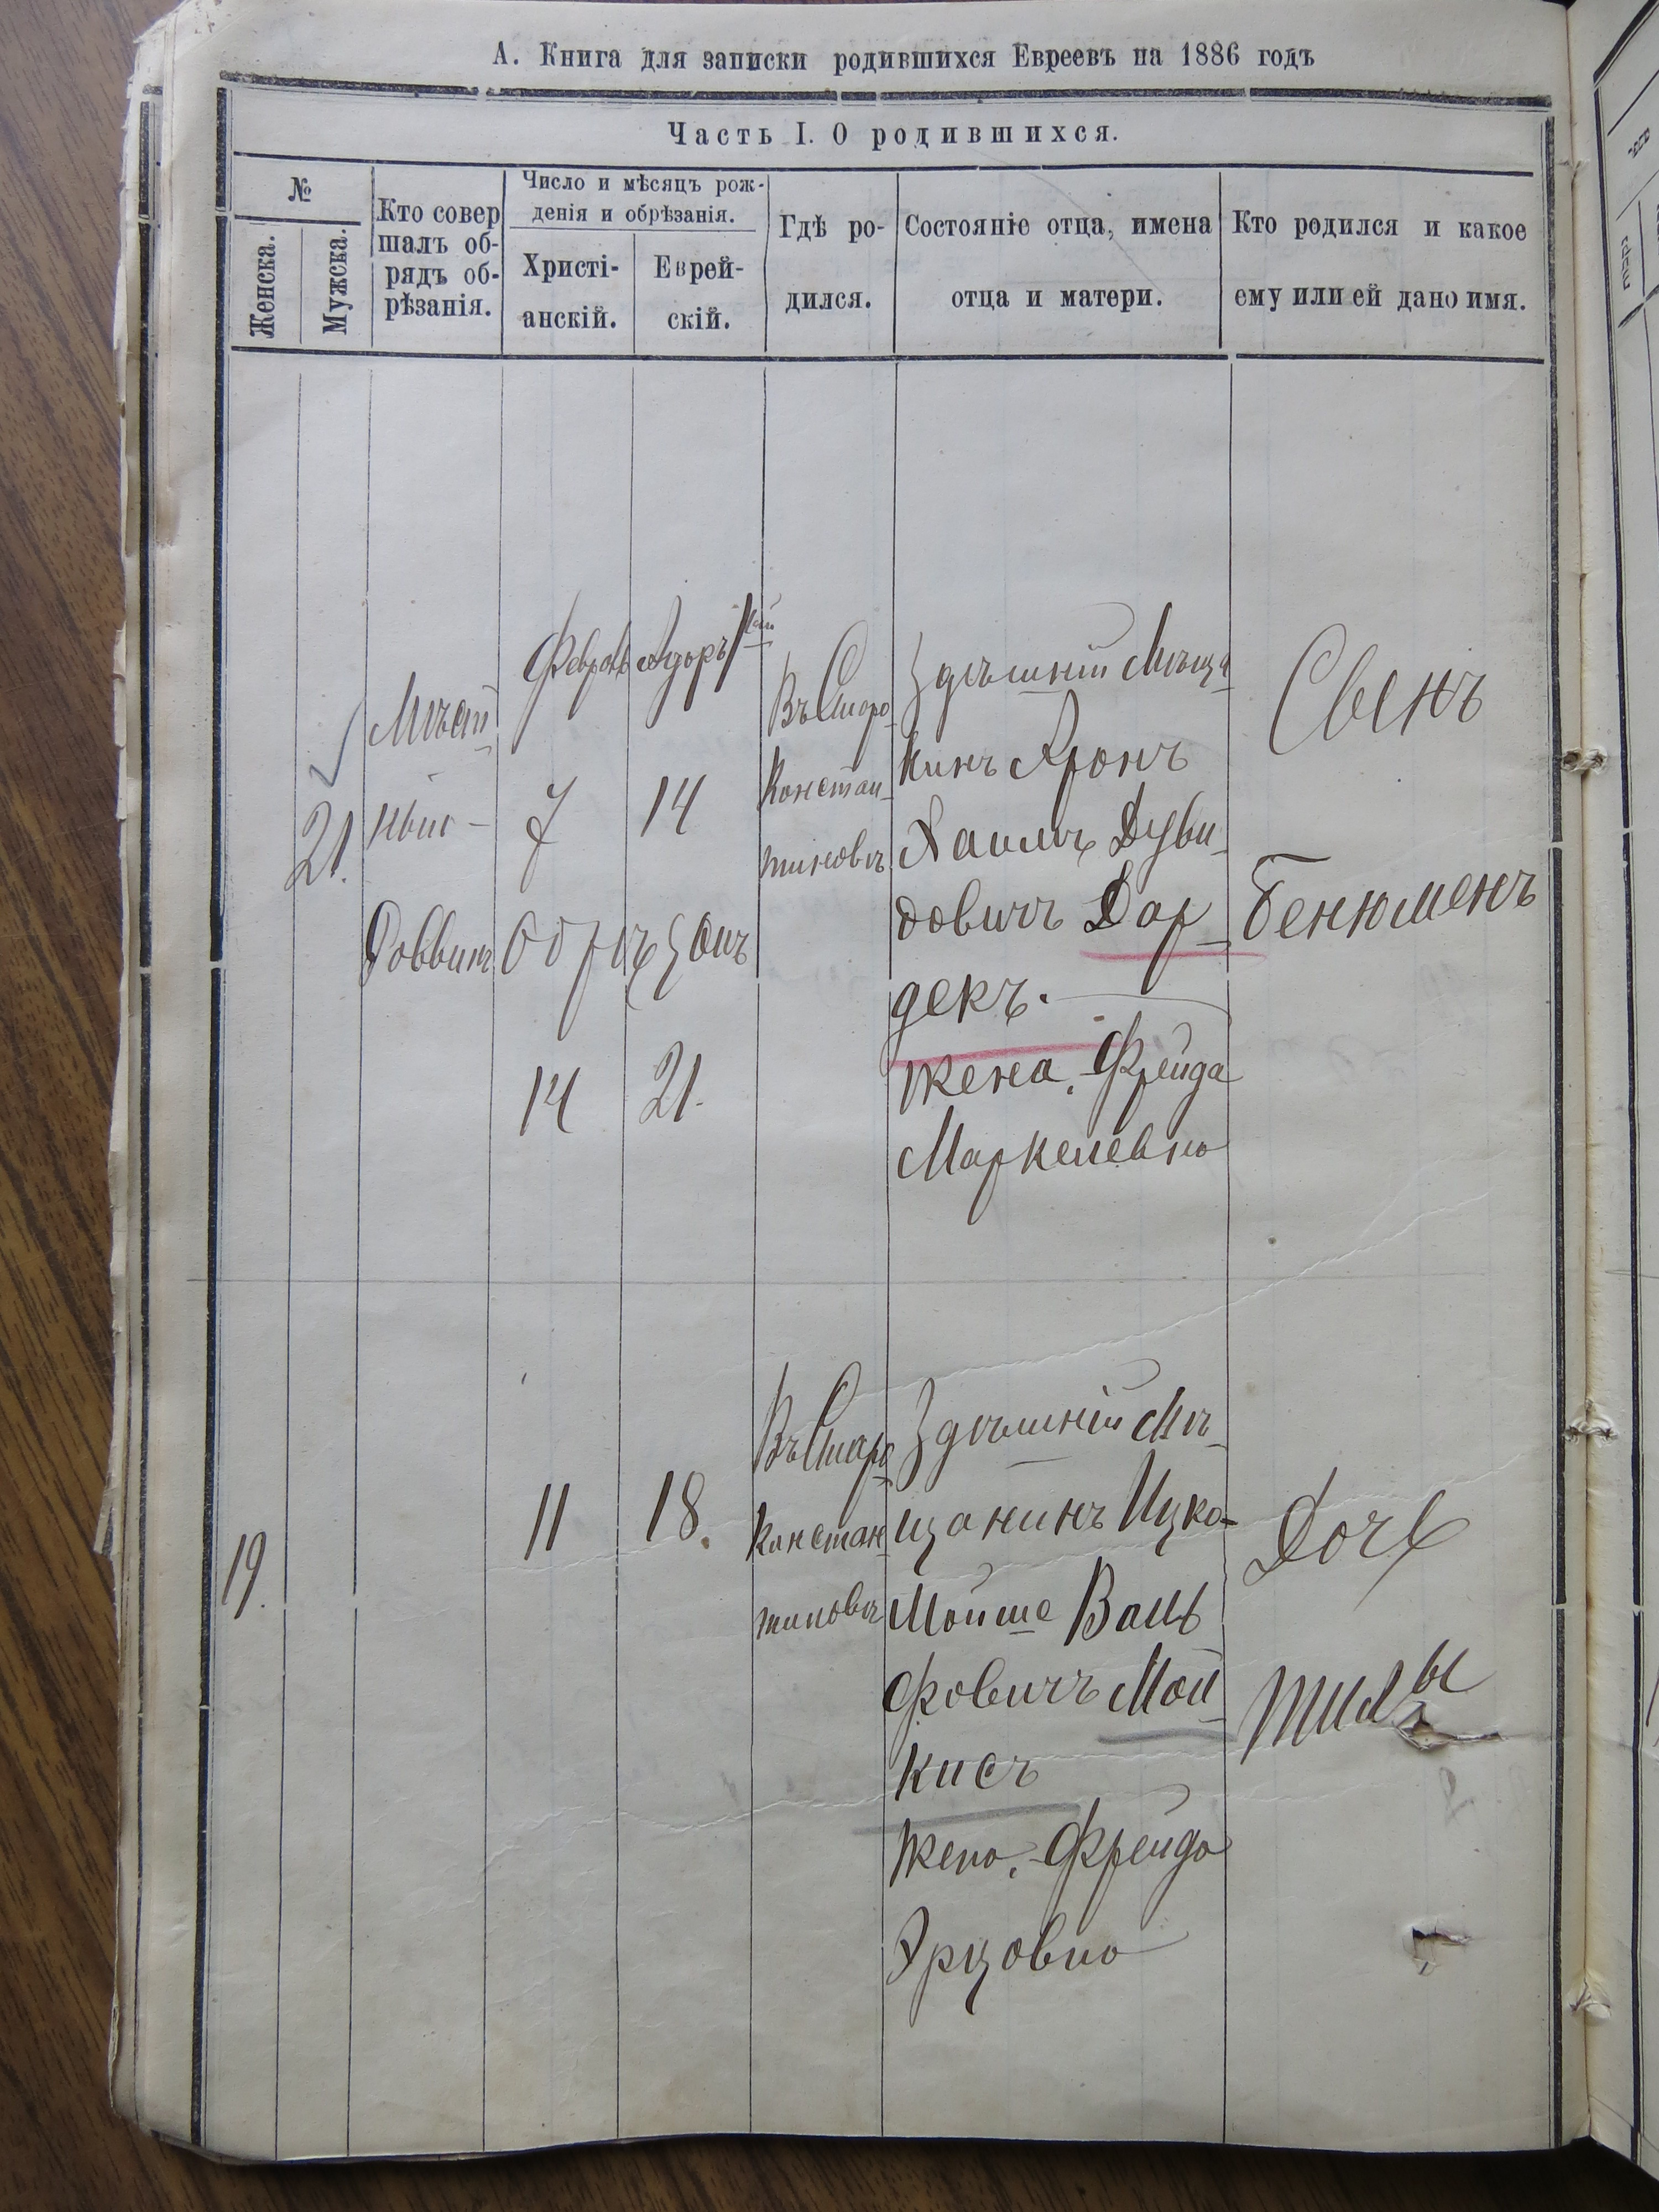 А. Книга для записки родившихся Евреевъ на 1886 годъ
Часть I. О родившихся.
№
Женска.
Мужска.
Кто совер
шалъ об-
рядъ об-
рѣзанія.
Число и мѣсяцъ рож-
денія и обрѣзанія.
Христі-
анскій.
Еврей-
скій.
Гдѣ ро-
дился.
Состояніе отца, имена
отца и матери.
Кто родился и какое
ему или ей дано имя.
21.
Мѣст
ный -
Раввинъ
Февраль
7
Адаръ
14
Обрѣзанъ
14
21.
Въ Старо
Констан-
тиновѣ
Здѣшній Мѣща
нинъ Аронъ
Хаимъ Дуви-
довичъ Дар-
декъ.
жена. Фрейда
Маркелевна
Сынъ
Бенюменъ
19.
11
18.
Въ Старо
Констан-
тиновѣ
Здѣшній Мѣ-
щанинъ Ицко-
Мойше Воль
фовичъ Мой-
кисъ
жена. Фрейда
Эрцовна
Дочь